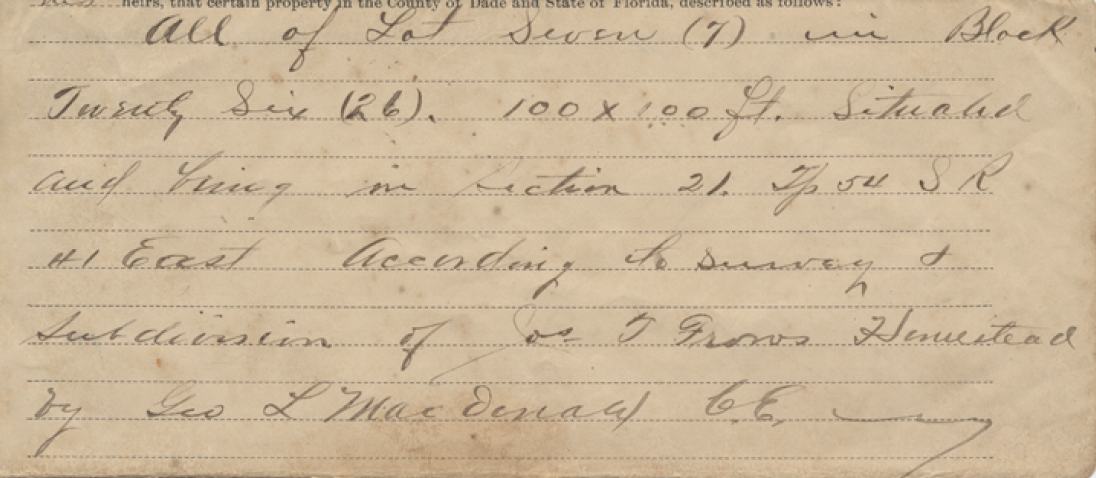 his heirs, that certain property in the County of Dade and State of Florida, described as follows:
All of Lot Seven (7) in Block
Twenty Six (26). 100 x 100 ft. Situated
and being in Section 21. Tp 54 S R
41 East According to survey &
subdivision of Jos T Frows Homestead
by Geo L MacDonald C.E.